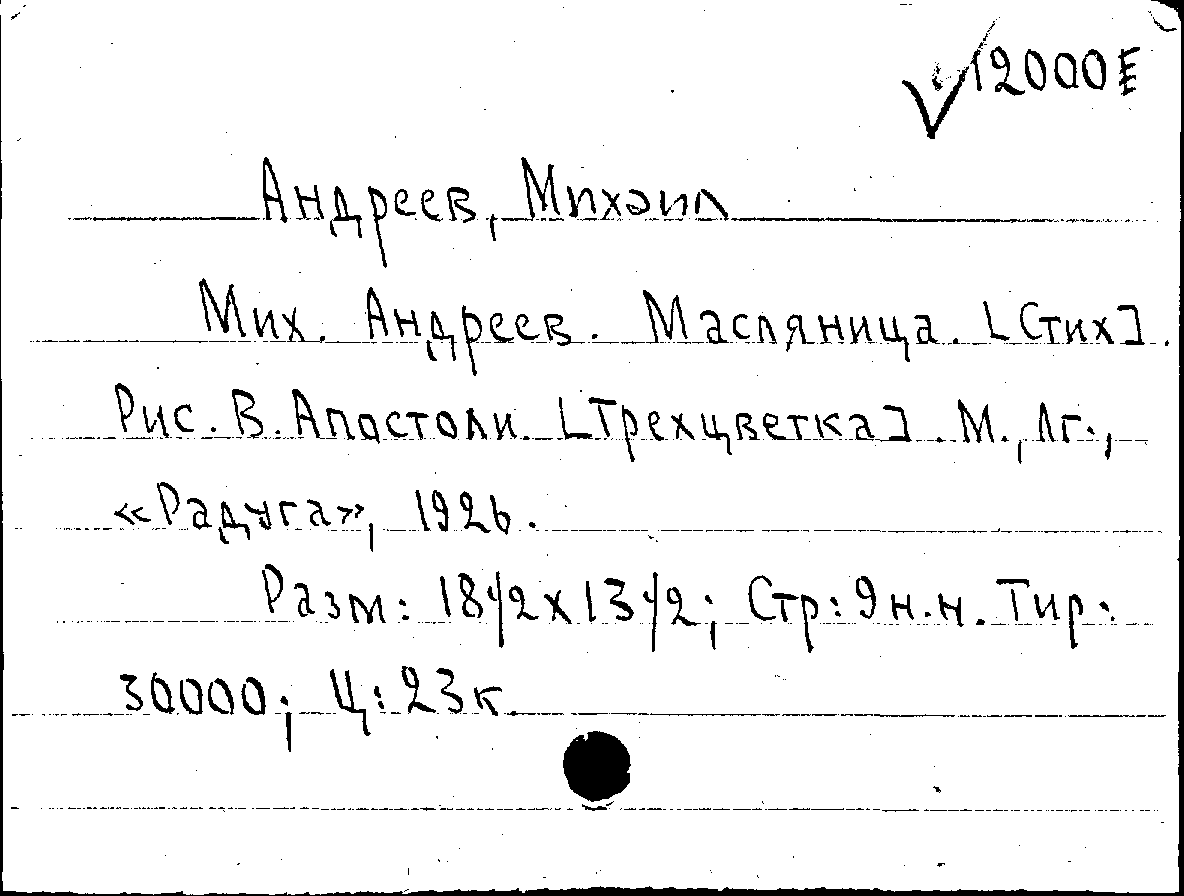 ✓12000
Андреев, Михаил
Мих. Андреев. Масляница. [Стих].
Рис. В. Апостоли. [Трехцветка]. М., Лг.,
«Радуга», 1926.
Разм: 18 1/2 х 13 1/2; Стр: 9 н.н. Тир:
30000; Ц: 23к.